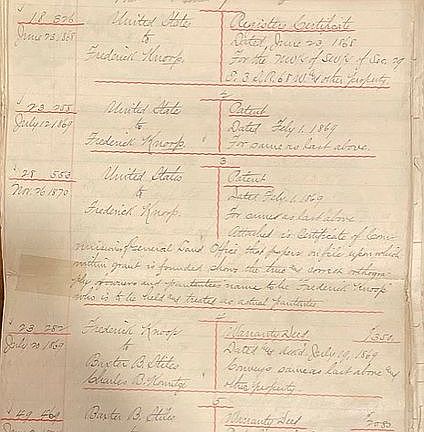 18 326 United States Registry Certificate
June 23, 1868 to Dated, June 23, 1868
Frederick Knoop For the NW¼ of SW¼ of Sec. 29
T. 3 S. R. 68 W. & other property.
2
23 255 United States Patent
July 12 1869 to Dated Feby 1. 1869
Frederick Knoop. For same as last above.
3
28 553 United States Patent
Nov. 26 1870 to Dated Feby 1. 1869
Frederick Knoop. For same as last above
Attached is Certificate of Com-
missioner General Land Office that papers on file upon which
within grant is founded shows the true and correct orthogra-
phy of owners and patentees name to be Frederick Knoop
who is to be held and treated as actual patentee.
4
23 282 Frederick Knoop Warranty Deed $350.
July 20 1869 to Dated & ackd. July 19, 1869
Baxter B. Stiles Conveys same as last above &
Charles B. Kountze other property.
5
49 409 Baxter B. Stiles Warranty Deed